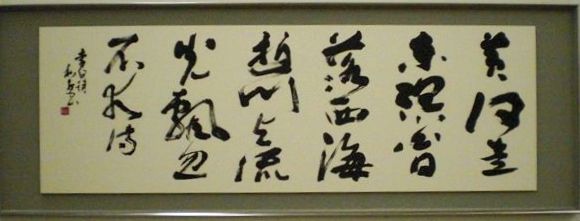 黄河走
東溟白日
落西海
逝川与流
光飄忽
不相待
李白詩